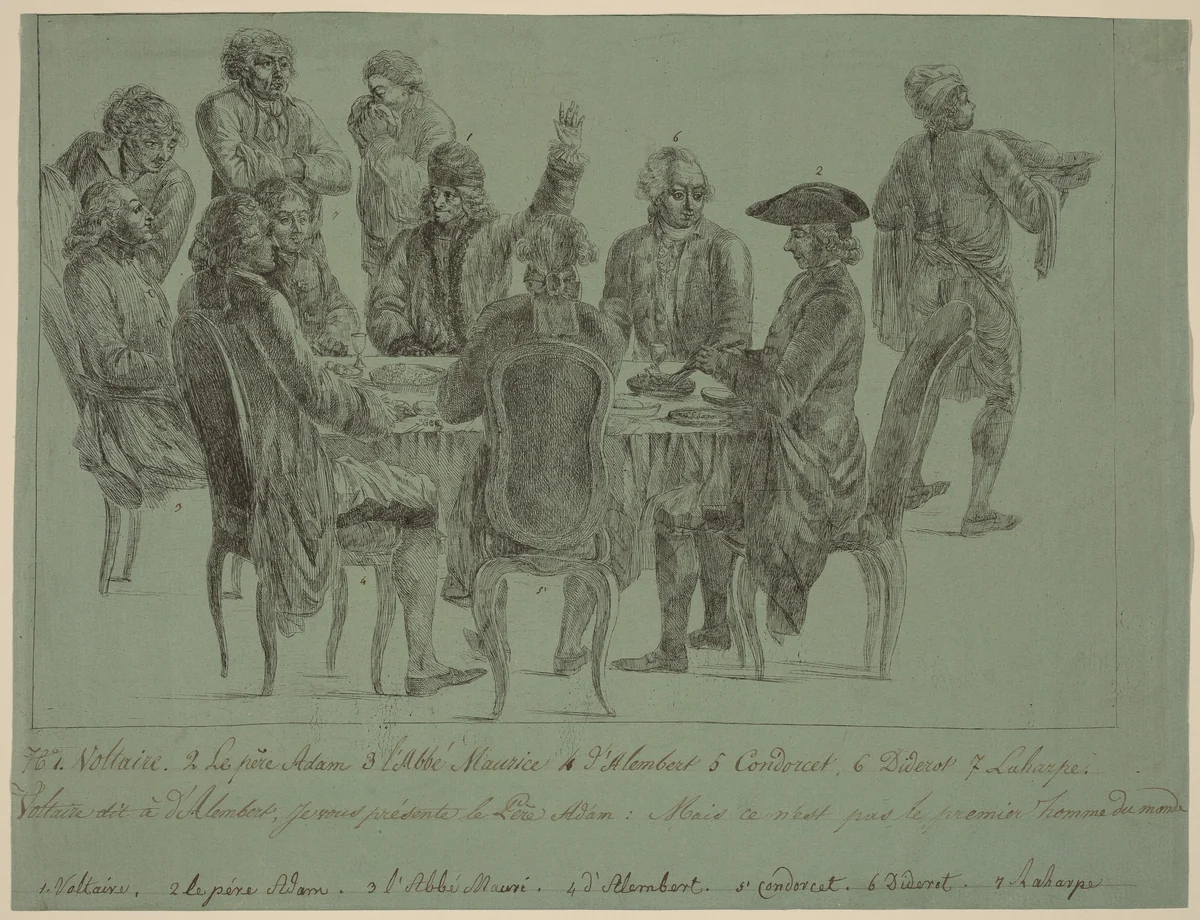 1
6
2
7
3
4
5
No 1. Voltaire. 2 Le père Adam 3 l'Abbé Maurice 4 d'Alembert 5 Condorcet, 6 Diderot 7 Laharpe.
Voltaire dit à D'Alembert, Je vous présente le Père Adam : Mais ce n'est pas le premier homme du monde
1. Voltaire. 2 le pére Adam. 3 l'Abbé Mauri. 4 d'Alembert. 5 condorcet. 6 Diderot. 7 Laharpe